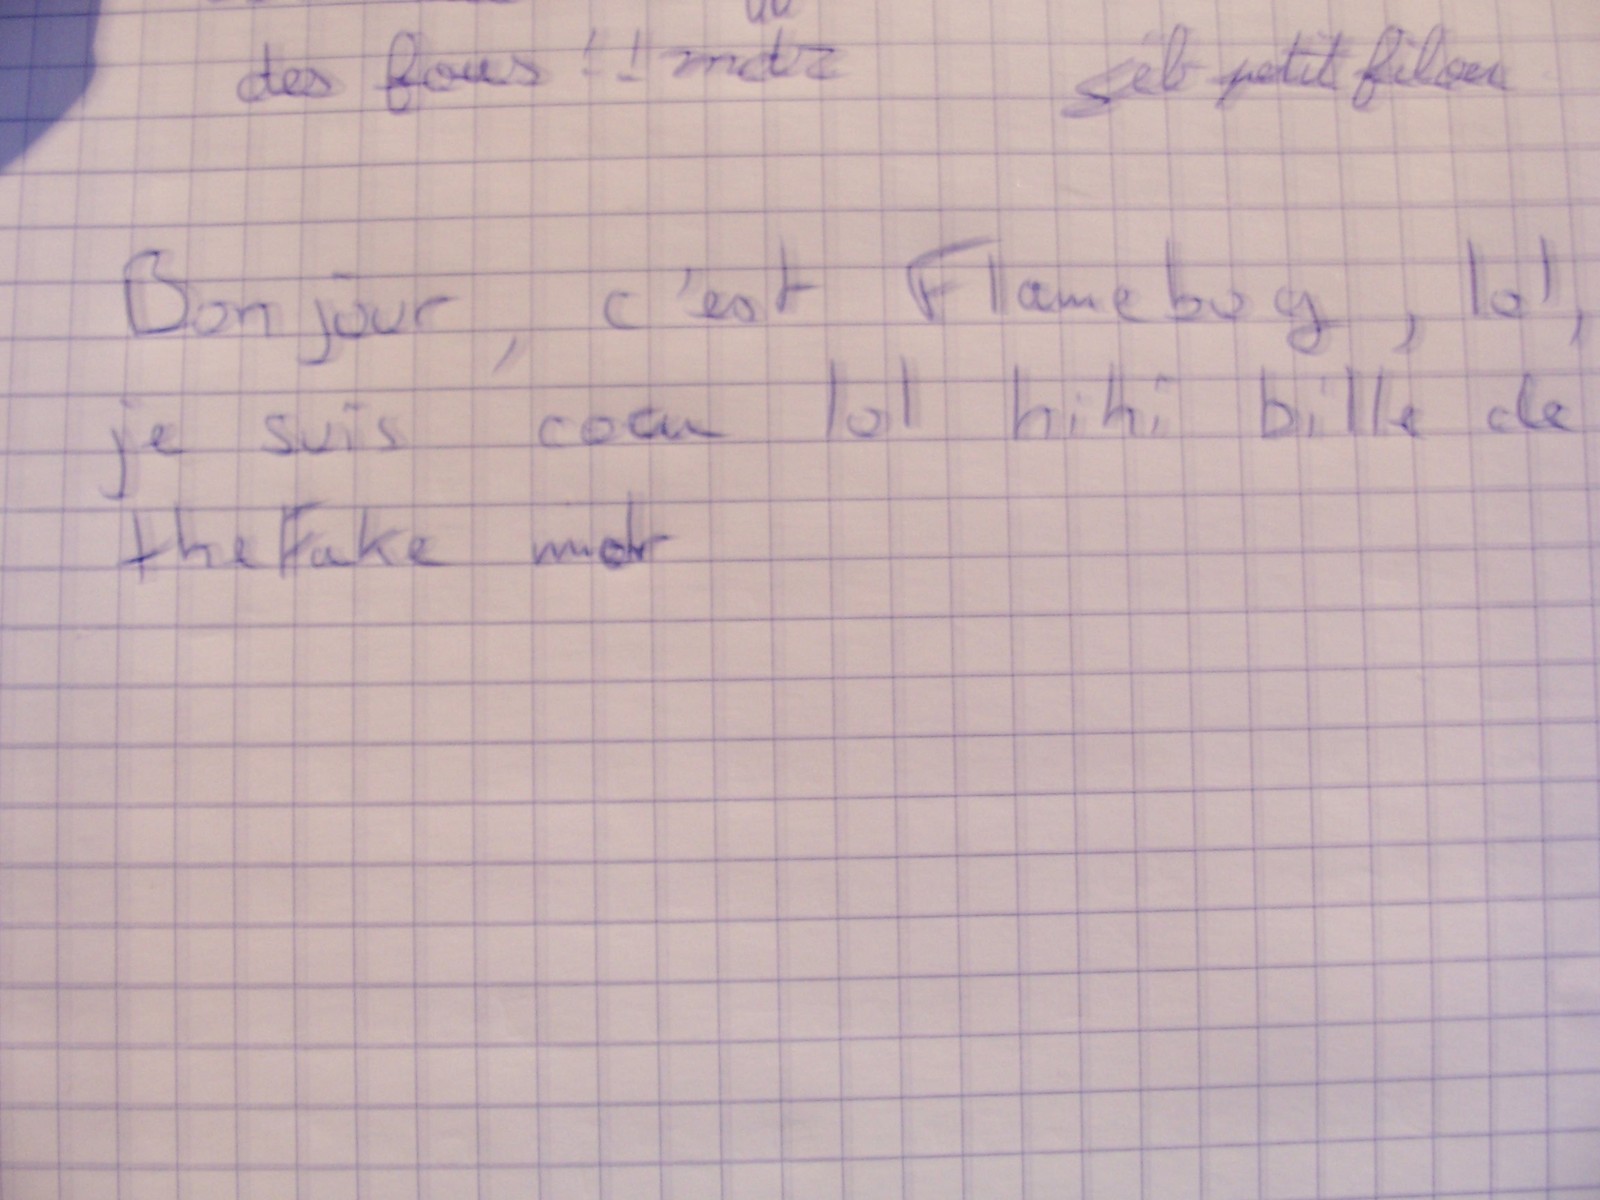 des fous !! mdr
seb petit filou
Bonjour, c'est Flameboy, lol,
je suis lol hihi bille de
theFake mdr